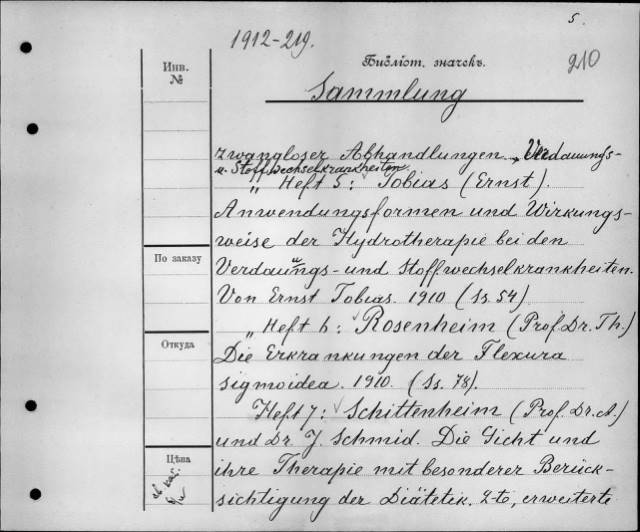 5.
1912-219.
Библіот. значекъ.
210
Инв.
№
Sammlung
zwangloser Abhandlungen Verdauungs-
u. Stoffwechselkrankheiten
„ Heft 5: Tobias (Ernst).
Anwendungsformen und Wirkungs-
weise der Hydrotherapie bei den
По заказу
Verdauungs- und Stoffwechselkrankheiten.
Von Ernst Tobias. 1910 (Ss. 54)
„ Heft 6: Rosenheim (Prof. Dr. Th.)
Откуда
Die Erkrankungen der Flexura
sigmoidea. 1910. (Ss. 78).
Heft 7: Schittenheim (Prof. Dr. A.)
und Dr. J. Schmid. Die Gicht und
Цѣна
ihre Therapie mit besonderer Berück-
sichtigung der Diätetik. 2-te, erweiterte